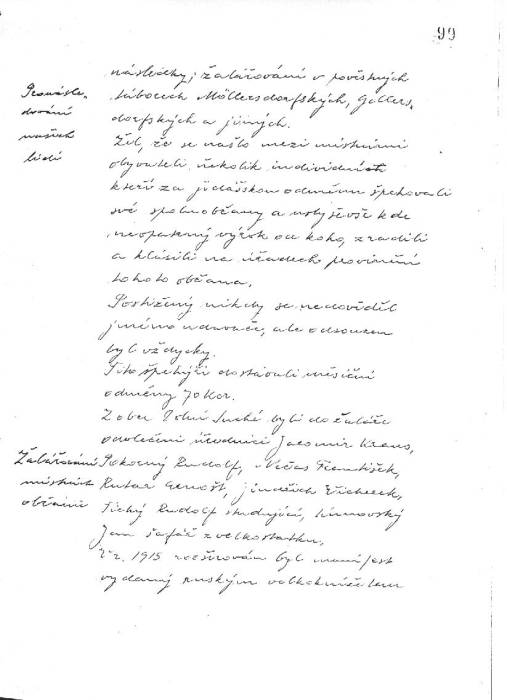 99
Pronásle-
dování
našich
lidí
následky; žalářování v pověstných
táborech Möllersdorfských, Göllers-
dorfských a jiných.
Žel, že se našlo mezi místními
obyvateli několik individuí
kteří za jidášskou odměnu špehovali
své spoluobčany a uslyševše kde
neopatrný výrok od koho, zradili
a hlásili na úřadech provinění
tohoto občana.
Postižený nikdy se nedověděl
jméno udavače, ale odsouzen
byl vždycky.
Tito špehýři dostávali měsíční
odměny 70 Kor.
Z obce Dolní Suché byli do žaláře
odvlečeni úředníci Jaromír Kraus,
Žalářování
místních
občanů
Pokorný Rudolf, Nečas František,
Kutar Arnošt, Jindřich
Tichý Rudolf studující,
Jan šafář z velkostatku.
V r. 1915 rozšiřován byl manifest
vydaný ruským velkoknížetem